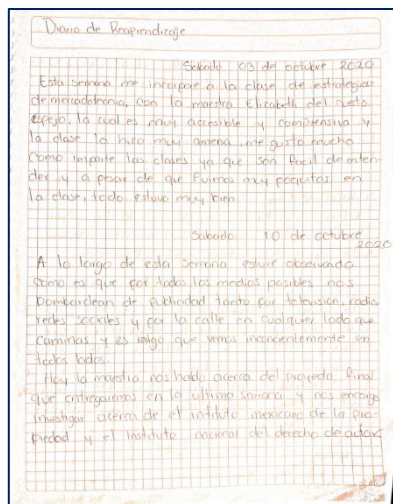 Diario de Reaprendizaje
Sabado 03 de octubre 2020
Esta semana me incorpore a la clase de estrategias
de mercadotecnia, con la maestra Elizabeth del
espejo, la cual es muy accesible y comprensiva y
la clase la hizo muy amena, me gusto mucho
como imparte las clases ya que son facil de enten
der y a pesar de que fuimos muy poquitos en
la clase, todo estuvo muy bien
Sabado 10 de octubre
2020
A lo largo de esta semana estuve observando
como es que por todos los medios posibles nos
bombardean de publicidad tanto por television, radio
redes sociales y por la calle en cualquier lado que
caminas y es algo que vemos inconcientemente en
todos lados.
Hoy la maestra nos hablo acerca del proyecto final
que entregaremos en la ultima semana y nos encargo
investigar acerca de el intituto mexicano de la pro
piedad y el instituto nacional del derecho de autor